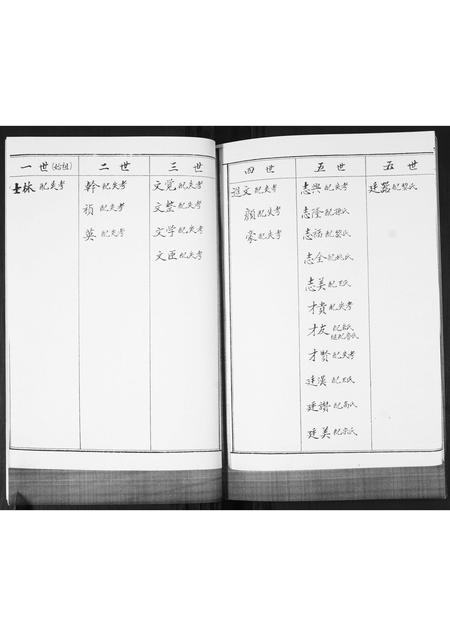 一世(始祖)
士林 配失考
二世
幹 配失考
祯 配失考
英 配失考
三世
文党 配失考
文整 配失考
文学 配失考
文臣 配失考
四世
廷文 配失考
颜 配失考
豪 配失考
五世
志興 配失考
志隆 配孫氏
志福 配黎氏
志全 配姚氏
志美 配王氏
才貴 配失考
才友
才贤 配失考
廷漢 配王氏
廷讃 配高氏
廷美 配宗氏
五世
廷器 配黎氏